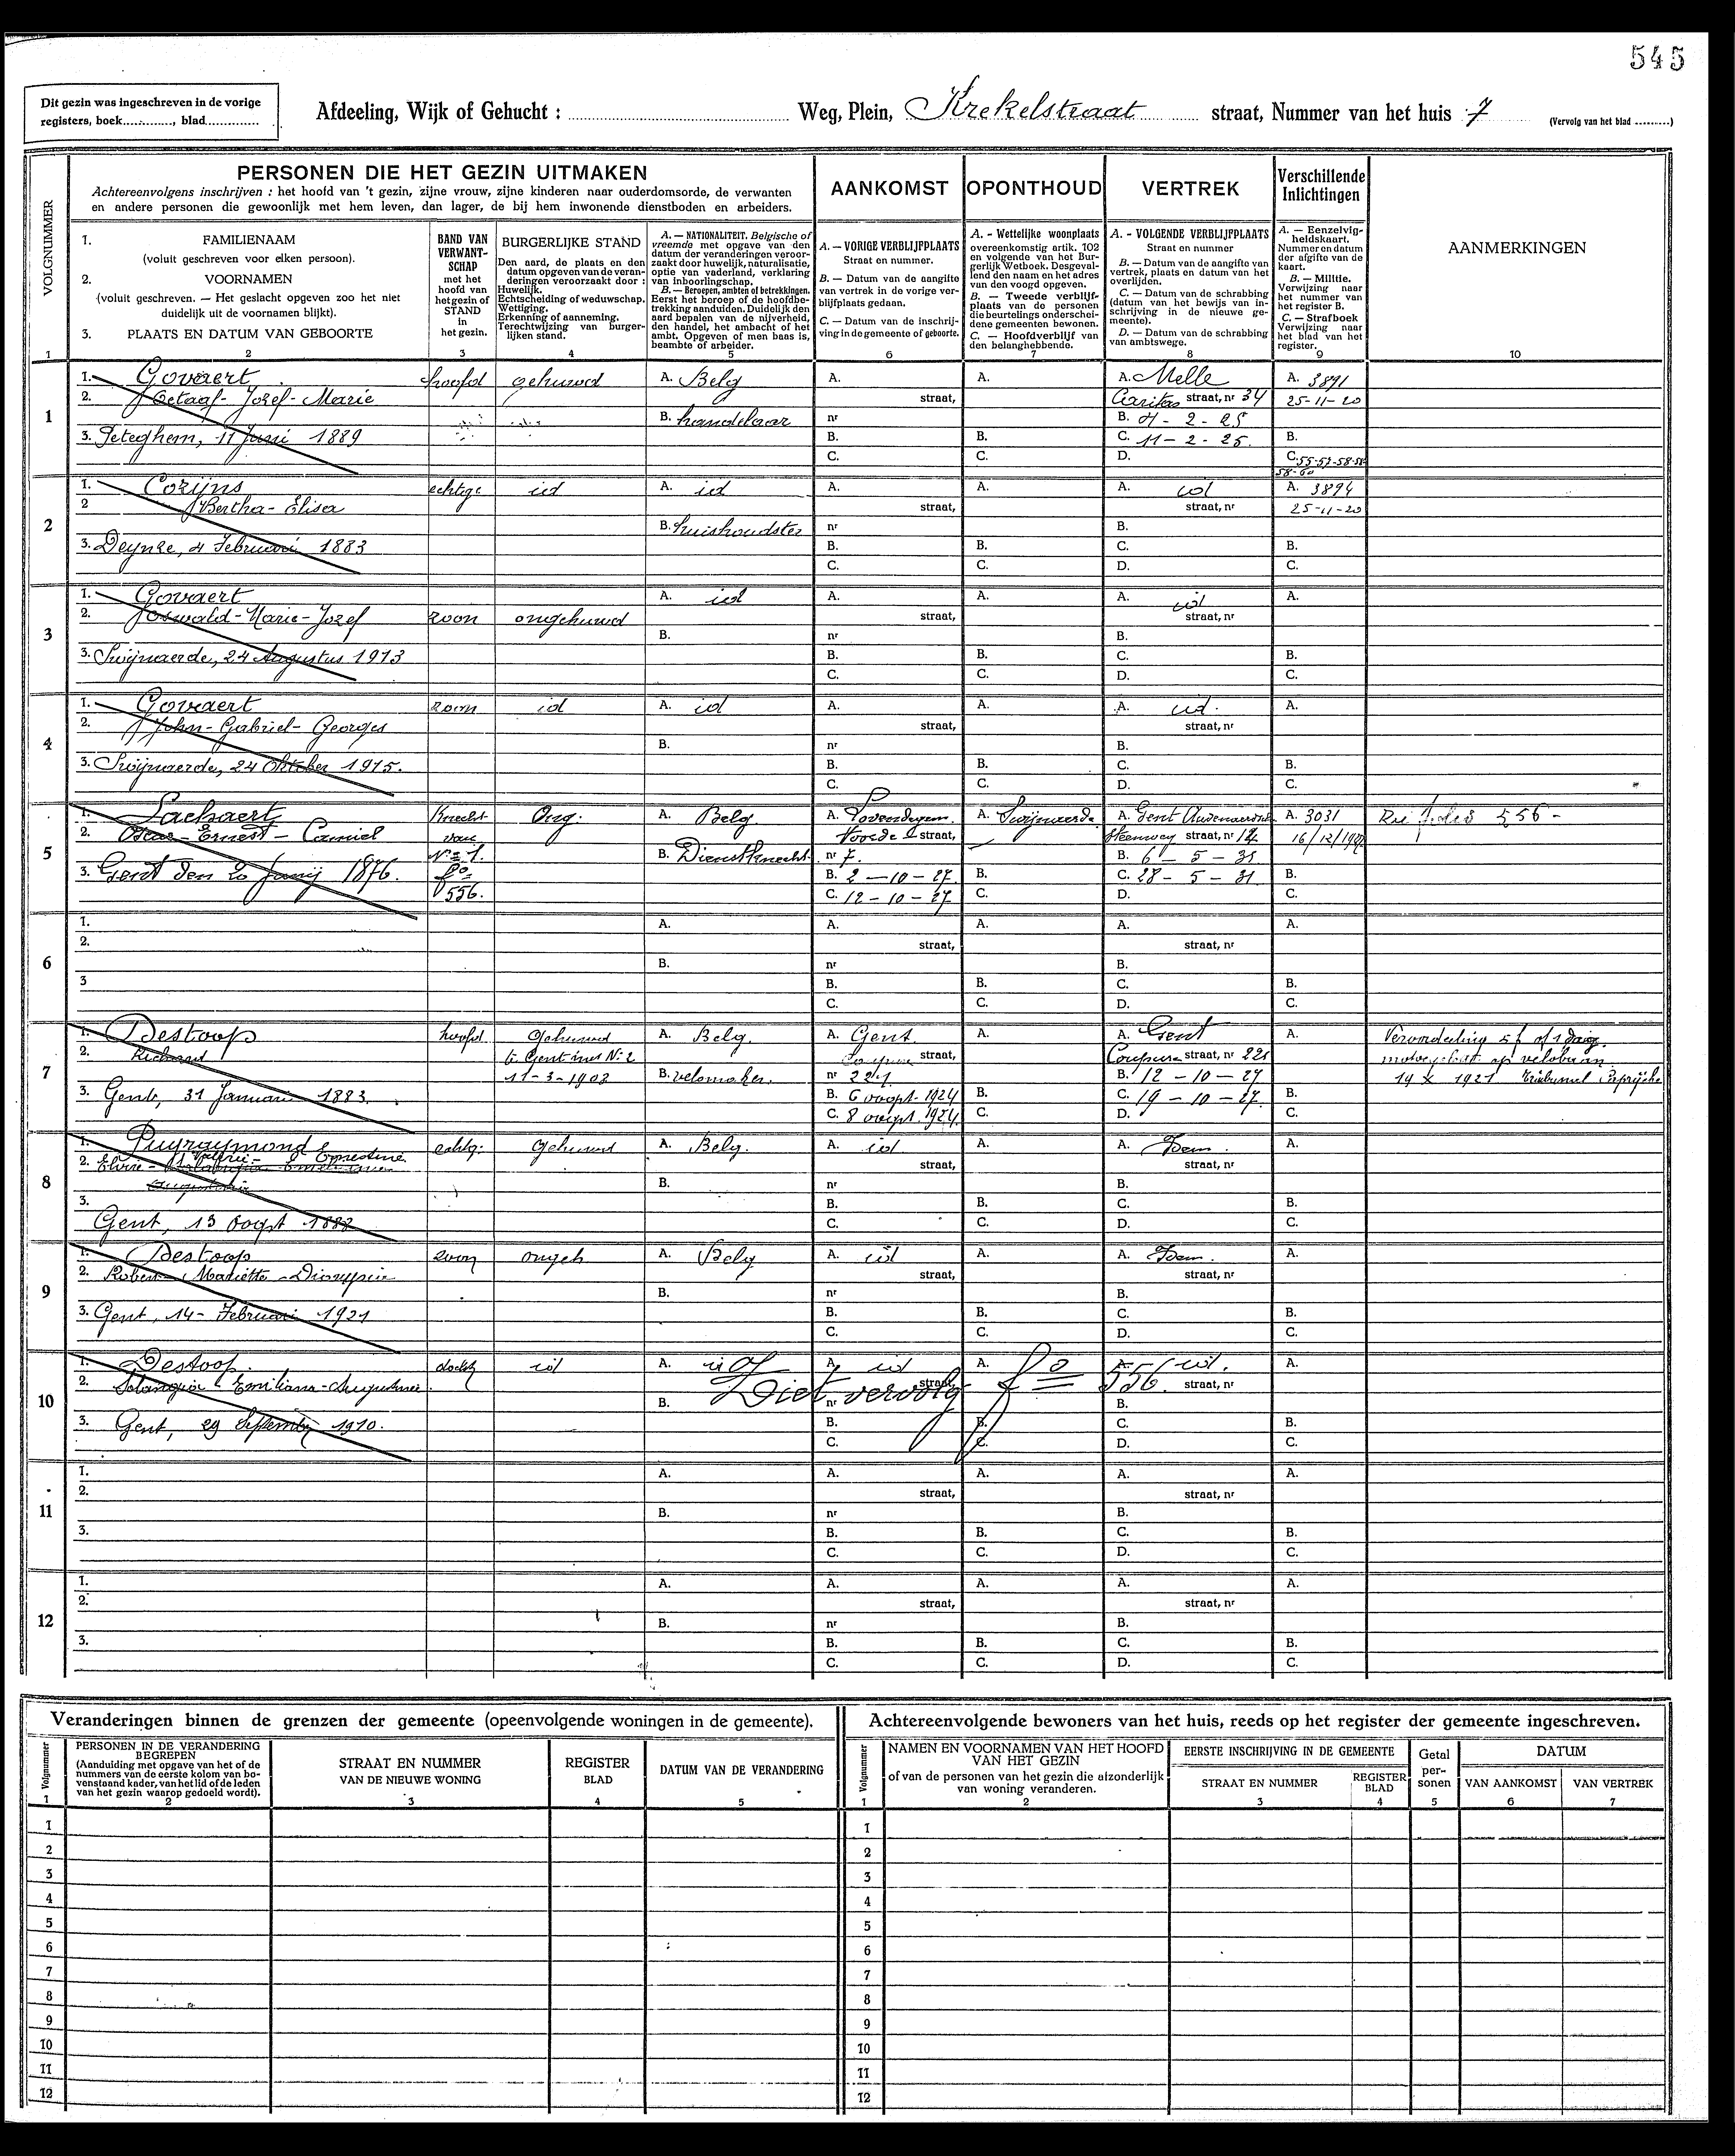 545
Dit gezin was ingeschreven in de vorige
registers, boek............, blad.............
Afdeeling, Wijk of Gehucht : Weg, Plein, Krekelstraat straat, Nummer van het huis 7 (Vervolg van het blad ..........)
VOLGNUMMER
PERSONEN DIE HET GEZIN UITMAKEN
Achtereenvolgens inschrijven : het hoofd van 't gezin, zijne vrouw, zijne kinderen naar ouderdomsorde, de verwanten
en andere personen die gewoonlijk met hem leven, dan lager, de bij hem inwonende dienstboden en arbeiders.
AANKOMST
OPONTHOUD
VERTREK
Verschillende
Inlichtingen
AANMERKINGEN
1. FAMILIENAAM
(voluit geschreven voor elken persoon).
2. VOORNAMEN
(voluit geschreven. — Het geslacht opgeven zoo het niet
duidelijk uit de voornamen blijkt).
3. PLAATS EN DATUM VAN GEBOORTE
BAND VAN
VERWANT-
SCHAP
met het
hoofd van
het gezin of
STAND
in
het gezin.
BURGERLIJKE STAND
Den aard, de plaats en den
datum opgeven van de veran-
deringen veroorzaakt door :
Huwelijk.
Echtscheiding of weduwschap.
Wettiging.
Erkenning of aanneming.
Terechtwijzing van burger-
lijken stand.
A. — NATIONALITEIT. Belgische of
vreemde met opgave van den
datum der veranderingen veroor-
zaakt door huwelijk, naturalisatie,
optie van vaderland, verklaring
van inboorlingschap.
B. — Beroepen, ambten of betrekkingen.
Eerst het beroep of de hoofdbe-
trekking aanduiden. Duidelijk den
aard bepalen van de nijverheid,
den handel, het ambacht of het
ambt. Opgeven of men baas is,
beambte of arbeider.
A. — VORIGE VERBLIJFPLAATS
Straat en nummer.
B. — Datum van de aangifte
van vertrek in de vorige ver-
blijfplaats gedaan.
C. — Datum van de inschrij-
ving in de gemeente of geboorte.
A. - Wettelijke woonplaats
overeenkomstig artik. 102
en volgende van het Bur-
gerlijk Wetboek. Desgeval-
lend den naam en het adres
van den voogd opgeven.
B. — Tweede verblijf-
plaats van de personen
die beurtelings onderschei-
dene gemeenten bewonen.
C. — Hoofdverblijf van
den belanghebbende.
A. - VOLGENDE VERBLIJFPLAATS
Straat en nummer
B. — Datum van de aangifte van
vertrek, plaats en datum van het
overlijden.
C. — Datum van de schrabbing
(datum van het bewijs van in-
schrijving in de nieuwe ge-
meente).
D. — Datum van de schrabbing
van ambtswege.
A. — Eenzelvig-
heidskaart.
Nummer en datum
der afgifte van de
kaart.
B. — Militie.
Verwijzing naar
het nummer van
het register B.
C. — Strafboek
Verwijzing naar
het blad van het
register.
1 2 3 4 5 6 7 8 9 10
1
1. Govaert hoofd gehuwd A. Belg A. A. A. Melle A. 3891
2. Octaaf-Jozef-Marie straat, Caritas straat, nr 34 25-11-20
B. handelaar nr B. 4-2-25
3. Peteghem, 11 Juni 1889 B. B. C. 11-2-25. B.
C. C. D. C. 55-57-58-58
58-60
2
1. Corijns echtge id A. id A. A. A. id A. 3894
2 Bertha-Elisa straat, straat, nr 25-11-20
B. huishoudster nr B.
3. Deynze, 4 Februari 1883 B. B. C. B.
C. C. D. C.
3
1. Govaert A. id A. A. A. id A.
2. Oswald-Marie-Jozef zoon ongehuwd straat, straat, nr
B. nr B.
3. Swijnaerde, 24 Augustus 1913 B. B. C. B.
C. C. D. C.
4
1. Govaert zoon id A. id A. A. A. id. A.
2. John-Gabriel-Georges straat, straat, nr
B. nr B.
3. Swijnaerde, 24 Oktober 1915. B. B. C. B.
C. C. D. C.
5
1. Lachaert Knecht Ong. A. Belg. A. A. Swijnaerde A. Gent A. 3031 556-
2. Oscar-Ernest-Camiel van Voorde straat, Steenweg straat, nr 16/12/19
N° 1. B. Dienstknecht nr 7. B. 6-5-31
3. Gent den 20 Junij 1876. f° B. 2-10-27. B. C. 28-5-31 B.
556. C. 12-10-27 C. D. C.
6
1. A. A. A. A. A.
2. straat, straat, nr
B. nr B.
3 B. B. C. B.
C. C. D. C.
7
1. Destoop hoofd Gehuwd A. Belg. A. Gent A. A. Gent A.
2. Richard te Gent met N° 2 straat, Coupure straat, nr 221 op velobaan
11-3-1902 B. velomaker. nr 221 B. 12-10-27 1921
3. Gent, 31 Januari 1883. B. 6 oogst 1924 B. C. 19-10-27. B.
C. 8 oogst 1924. C. D. C.
8
1. Puyraymond echtg: Gehuwd A. Belg. A. id A. A. Idem. A.
2. Elvire- Ernestine straat, straat, nr
B. nr B.
3. B. B. C. B.
Gent, 13 Oogst 1882 C. C. D. C.
9
1. Destoop zoon ongeh A. Belg A. id A. A. Idem. A.
2. Robert straat, straat, nr
B. nr B.
3. Gent, 14- Februari 1921 B. B. C. B.
C. C. D. C.
10
1. Destoop. docht id A. id A. id A. A. id. A.
2. Emiliana straat, straat, nr
Ziet vervolg f° 556.
B. nr B.
3. Gent, 29 September 1910. B. B. C. B.
C. C. D. C.
11
1. A. A. A. A. A.
2. straat, straat, nr
B. nr B.
3. B. B. C. B.
C. C. D. C.
12
1. A. A. A. A. A.
2. straat, straat, nr
B. nr B.
3. B. B. C. B.
C. C. D. C.
Veranderingen binnen de grenzen der gemeente (opeenvolgende woningen in de gemeente).
Volgnummer
PERSONEN IN DE VERANDERING
BEGREPEN
(Aanduiding met opgave van het of de
nummers van de eerste kolom van bo-
venstaand kader, van het lid of de leden
van het gezin waarop gedoeld wordt).
STRAAT EN NUMMER
VAN DE NIEUWE WONING
REGISTER
BLAD
DATUM VAN DE VERANDERING
1 2 3 4 5
1
2
3
4
5
6
7
8
9
10
11
12
Achtereenvolgende bewoners van het huis, reeds op het register der gemeente ingeschreven.
Volgnummer
NAMEN EN VOORNAMEN VAN HET HOOFD
VAN HET GEZIN
of van de personen van het gezin die afzonderlijk
van woning veranderen.
EERSTE INSCHRIJVING IN DE GEMEENTE
STRAAT EN NUMMER
REGISTER
BLAD
Getal
per-
sonen
DATUM
VAN AANKOMST
VAN VERTREK
1 2 3 4 5 6 7
1
2
3
4
5
6
7
8
9
10
11
12